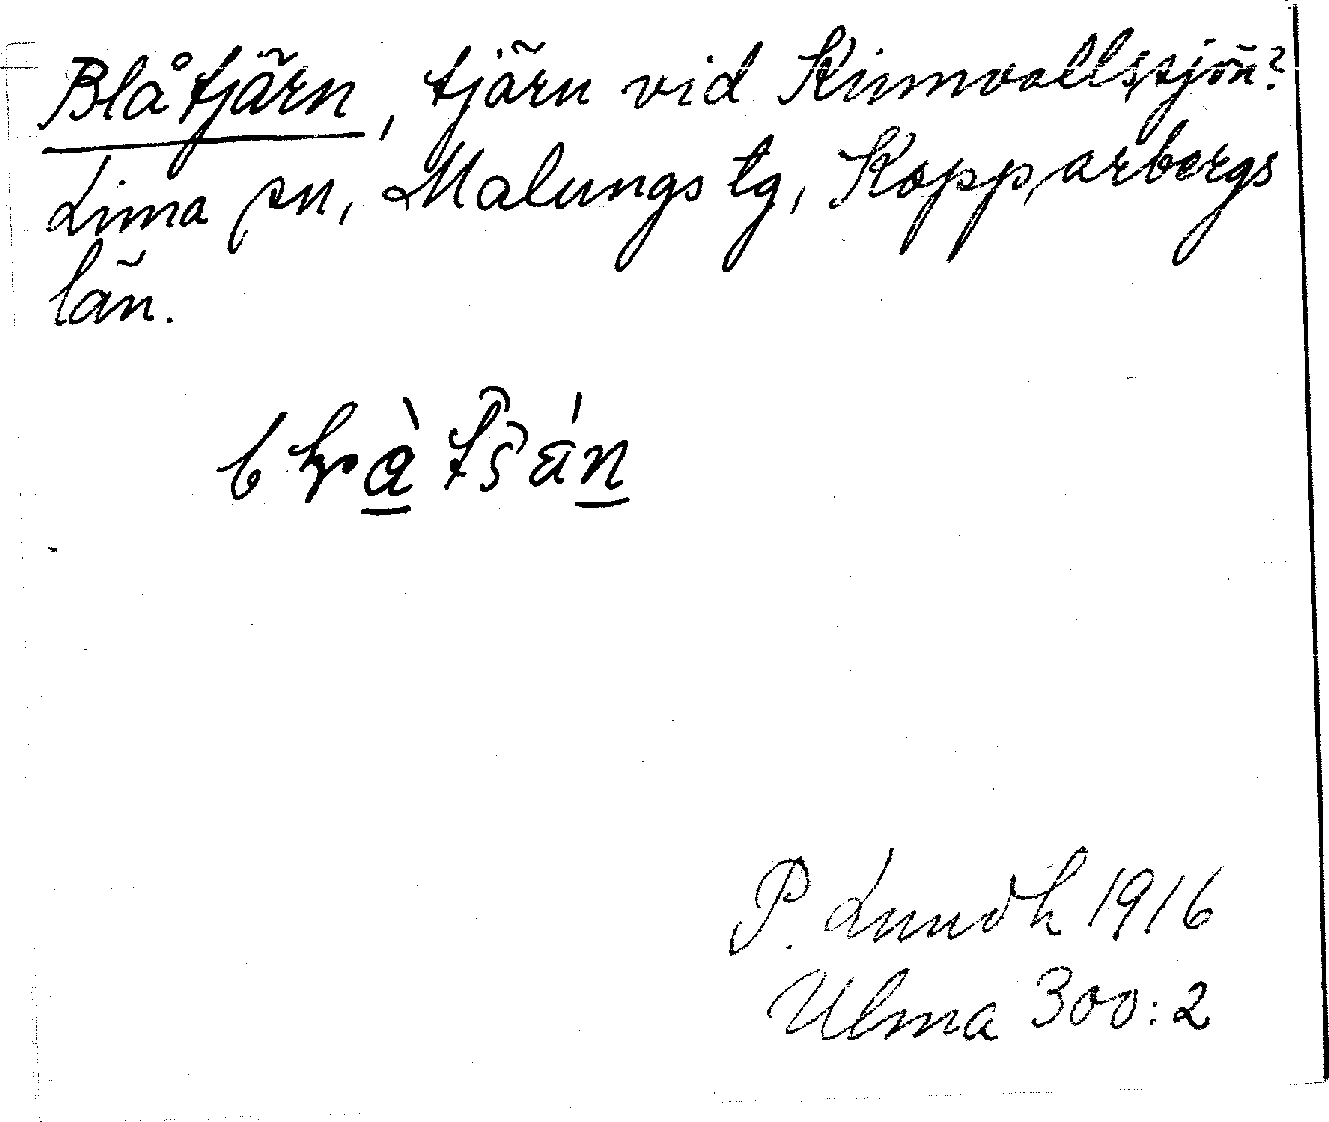 Blåtjärn, tjärn vid Kinnvallsjön?
Lima sn, Malungs tg, Kopparbergs
län.
P. Lundh 1916
Ulma 300:2